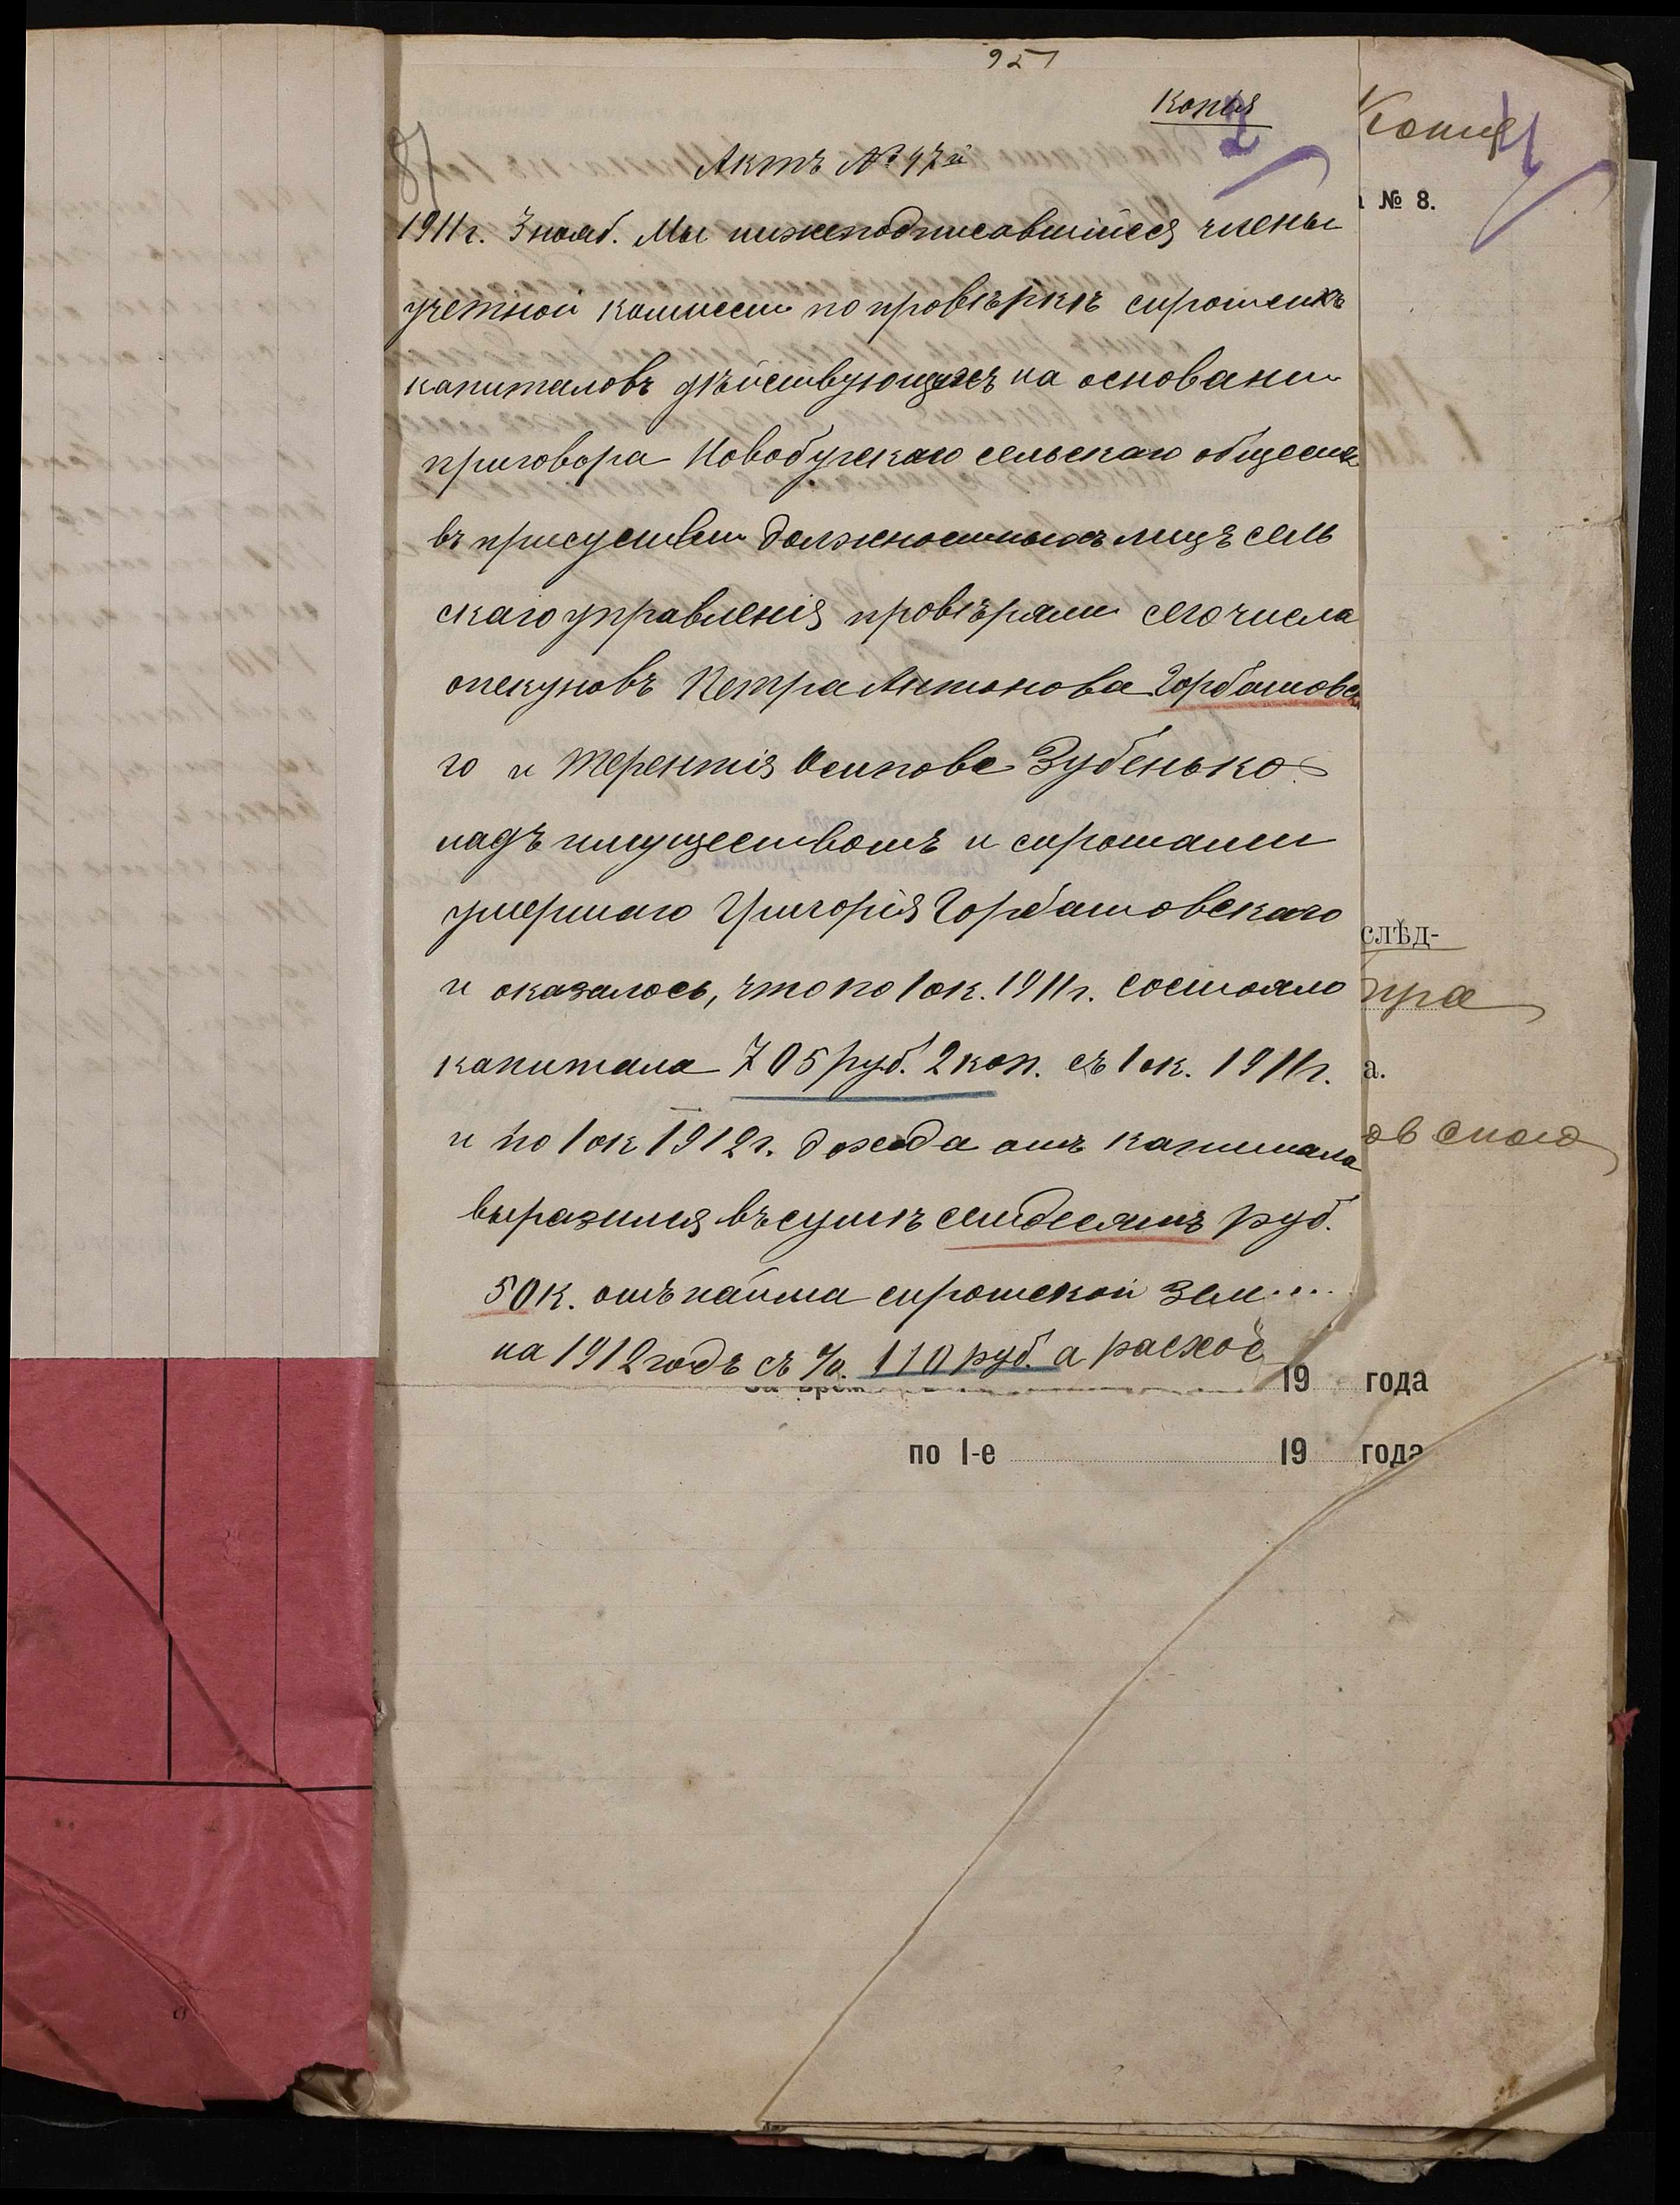 951
Копія
2
Актъ № 47й
87
1911 г. 3 нояб. Мы нижеподписавшіися члены
учетной комисси по провѣркѣ сиротскихъ
капиталовъ дѣйствующихъ на основани
приговора Новобугскаго сельскаго обществ
въ присуствеи должностныхъ лицъ сель
скаго управленія провѣряли сего числа
опекуновъ Петра Антонова Горбатовска
го и Терентія Осипова Зубенько
надъ имуществомъ и сиротами
умершаго Григорія Горбатовскаго
и оказалось, что по 1 ок. 1911 г. состояло
капитала 705 руб. 2 коп. съ 1 ок. 1911 г.
и по 1 ок 1912 г. дохода отъ капитала
выразился въ сумѣ семдесятъ руб.
50 к. отъ найма сиротской зем....
на 1912 годъ съ %. 110 руб. а расход
Копія
№ 8.
слѣд-
тра
а.
овского
19 года
по 1-е 19 года